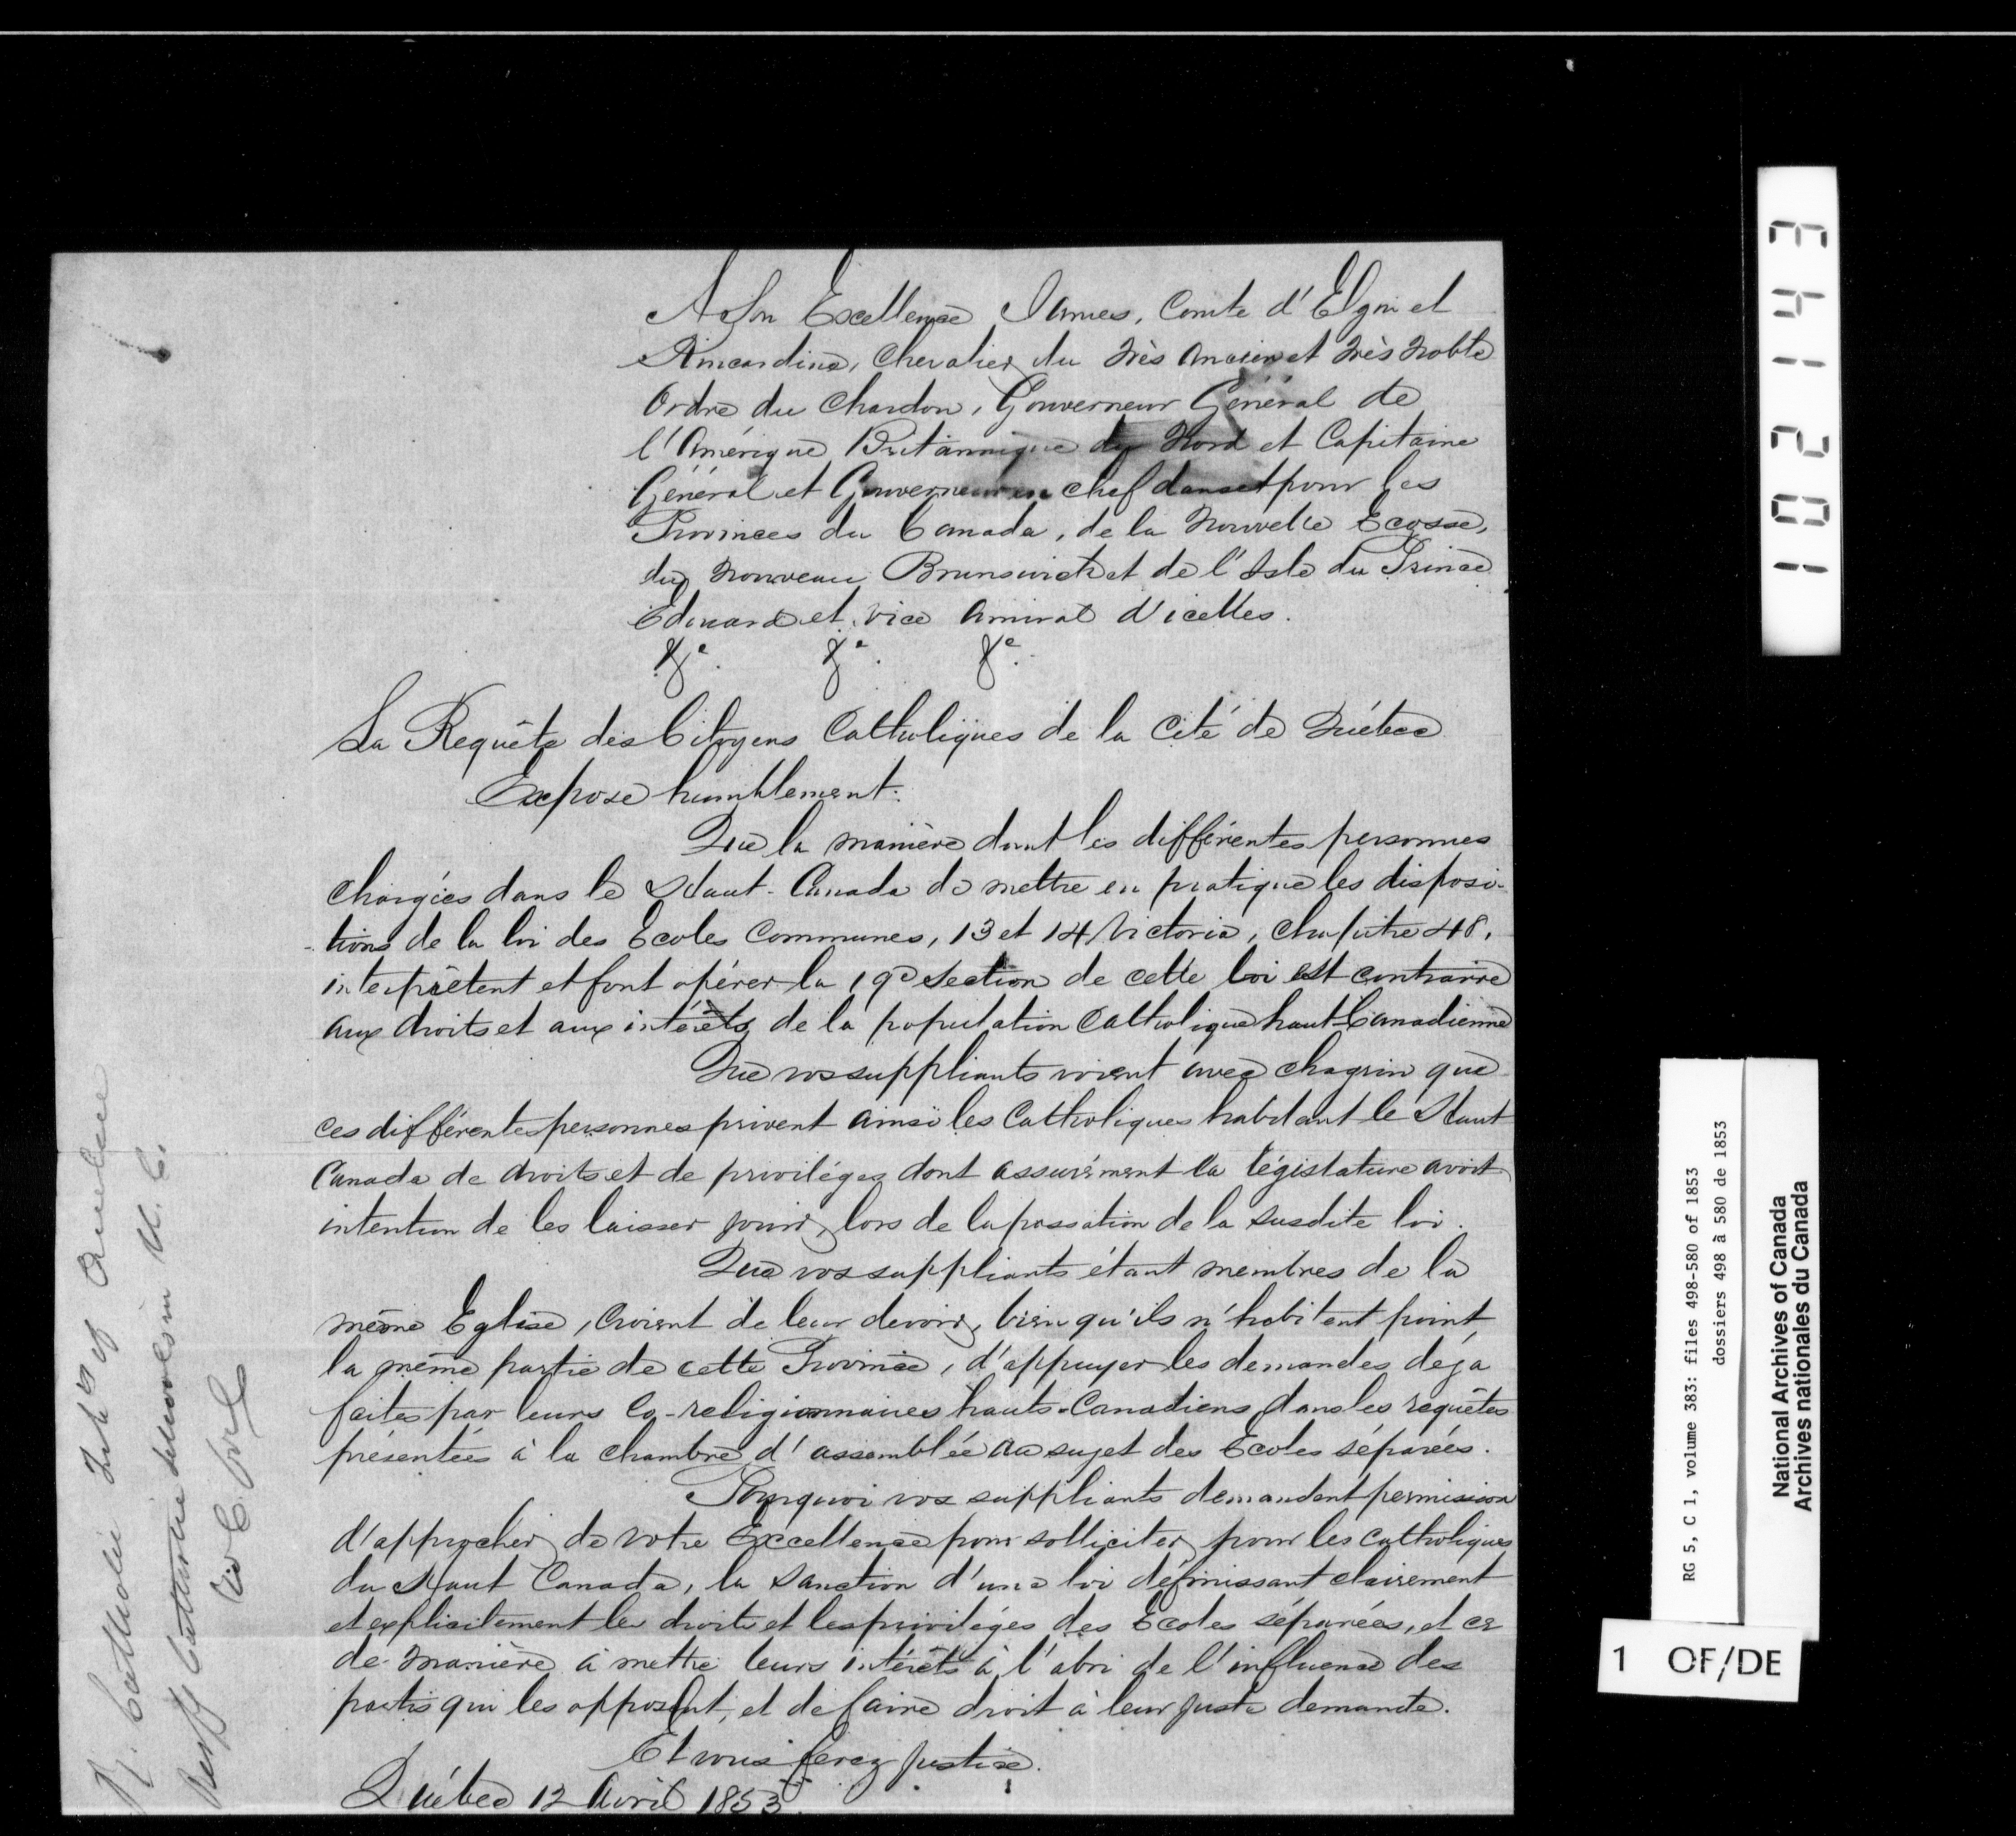 A Son Excellence James, Comte d'Elgin et
Kincardine, Chevalier du très ancien et très Noble
Ordre du Chardon, Gouverneur Général de
l'Amérique Britannique du Nord et Capitaine
Général et Gouverneur en chef dans et pour les
Provinces du Canada, de la Nouvelle Ecosse,
du Nouveau Brunswick et de l'Isle du Prince
Edouard et vice Amiral d'icelles.
&c. &c. &c.
La Requête des Citoyens Catholiques de la Cité de Québec
Expose humblement:
Que la manière dont les différentes personnes
chargées dans le Haut-Canada de mettre en pratique les disposi-
-tions de la loi des Ecoles Communes, 13 et 14 Victoria, chapitre 48,
interprêtent et font opérer la 19e Section de cette loi est contraire
aux droits et aux intérêts de la population Catholique haut-Canadienne
Que vos suppliants voient avec chagrin que
ces différentes personnes privent ainsi les Catholiques habitant le Haut
Canada de droits et de priviléges dont assurément la législature avoit
intention de les laisser jouir, lors de la passation de la susdite loi.
Que vos suppliants étant membres de la
même Eglise, croient de leur devoir, bien qu'ils n'habitent point
la même partie de cette Province, d'appuyer les demandes déja
faites par leurs Co-religionnaires hauts-Canadiens dans les requêtes
présentées à la chambre d'assemblée au sujet des Ecoles séparées.
Pourquoi vos suppliants demandent permission
d'approcher de votre Excellence pour solliciter, pour les catholiques
du Haut Canada, la Sanction d'une loi définissant clairement
et explicitement les droits et les priviléges des Ecoles séparées, et ce
de manière à mettre leurs intérêts à l'abri de l'influence des
partis qui les opposent, et de faire droit à leur juste demande.
Et vous ferez justice.
Québec 12 Avril 1853.
R. Catholic Inhts of Quebec
Catholic schools in U. C.
102143
RG 5, C 1, volume 383: files 498-580 of 1853
dossiers 498 à 580 de 1853
National Archives of Canada
Archives nationales du Canada
1 OF/DE